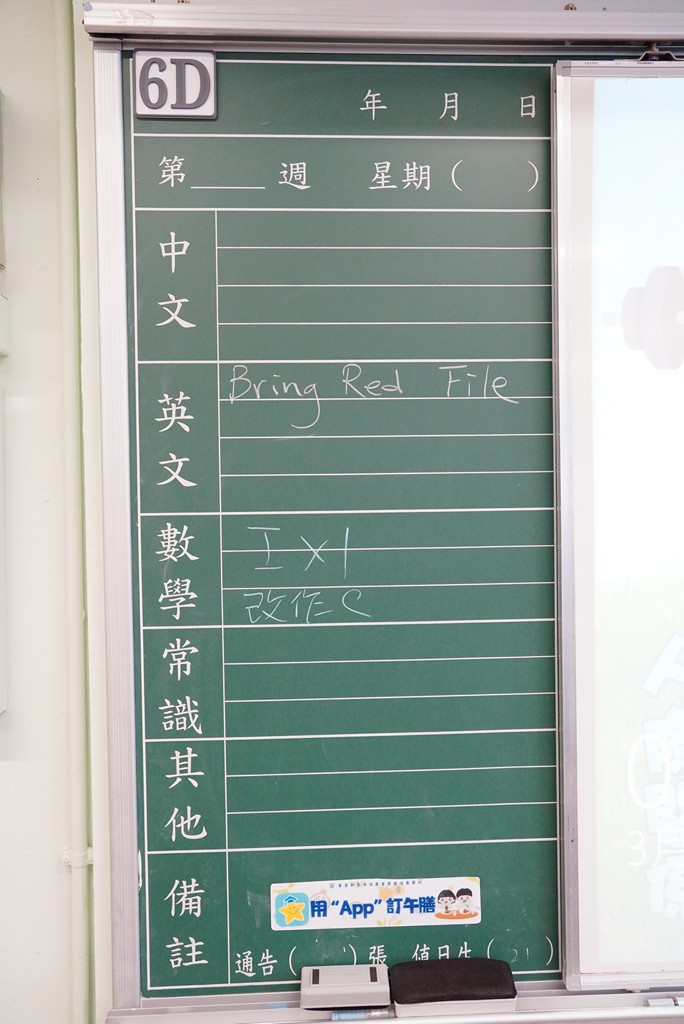 6D
年 月 日
第____週 星期( )
中文
英文
Bring Red File
數學
I X 1
改作C
常識
其他
備註
用“App”訂午膳
通告( )張 值日生(21)